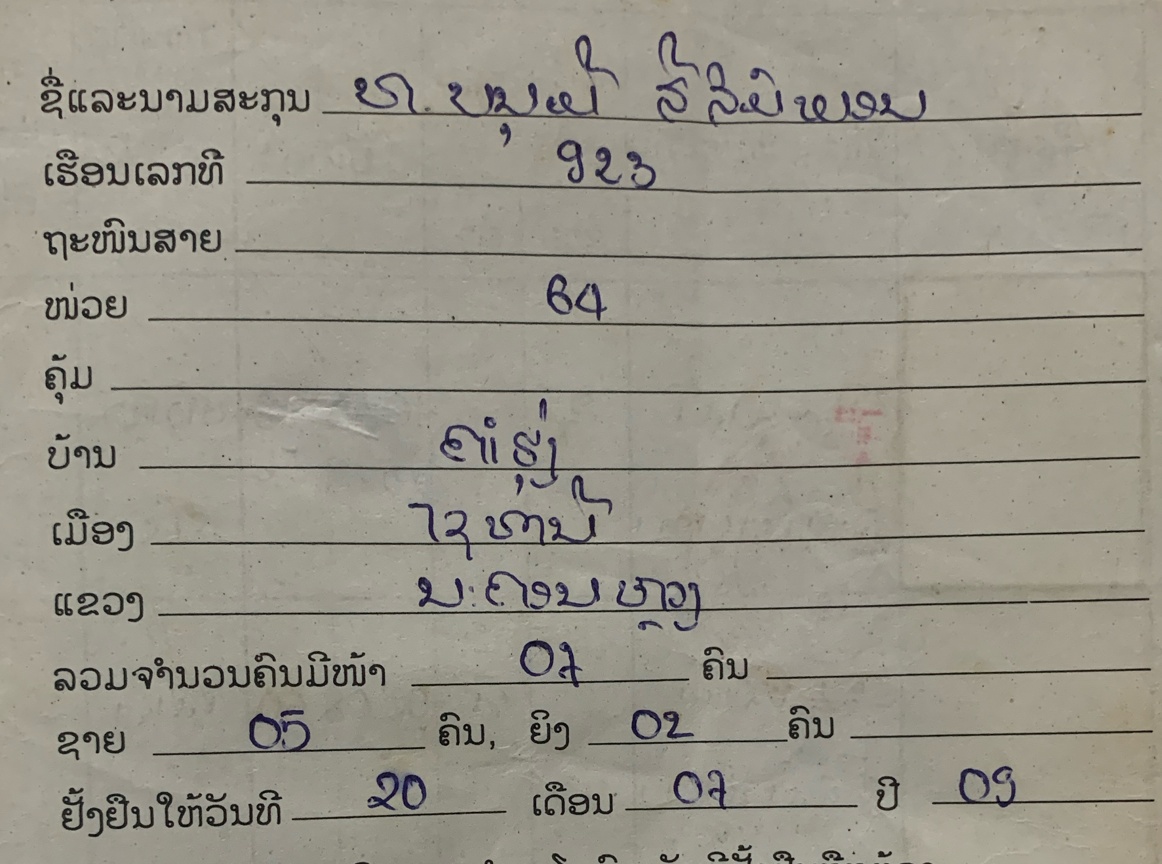 ຊື່ແລະນາມສະກຸນ ທ.
ເຮືອນເລກທີ 923
ຖະໜົນສາຍ
ໜ່ວຍ 64
ຄຸ້ມ
ບ້ານ ຄຳຮຸ່ງ
ເມືອງ ໄຊທານີ
ແຂວງ ນະຄອນຫຼວງ
ລວມຈຳນວນຄົນມີໜ້າ 07 ຄົນ
ຊາຍ 05 ຄົນ, ຍິງ 02 ຄົນ
ຢັ້ງຢືນໃຫ້ວັນທີ 20 ເດືອນ 07 ປີ 09